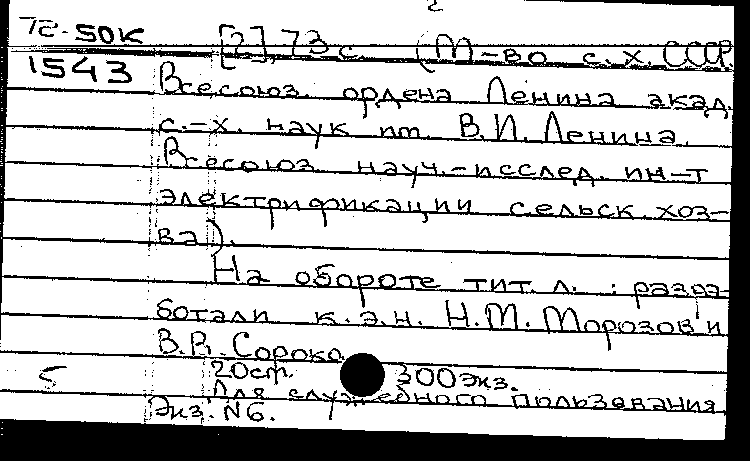 2
72-50к [2], 73 с. (М-во с.х. СССР.
1543 Всесоюз. ордена Ленина акад.
с.-х. наук им. В.И. Ленина.
Всесоюз науч.-исслед. ин-т
электрификации сельск. хоз-
ва).
На обороте тит. л. : разра-
ботали к.э.н. Н.М. Морозов и
В.В. Сороко.
20 см. 300 экз.
5 Для служебного пользования
Экз. N6.